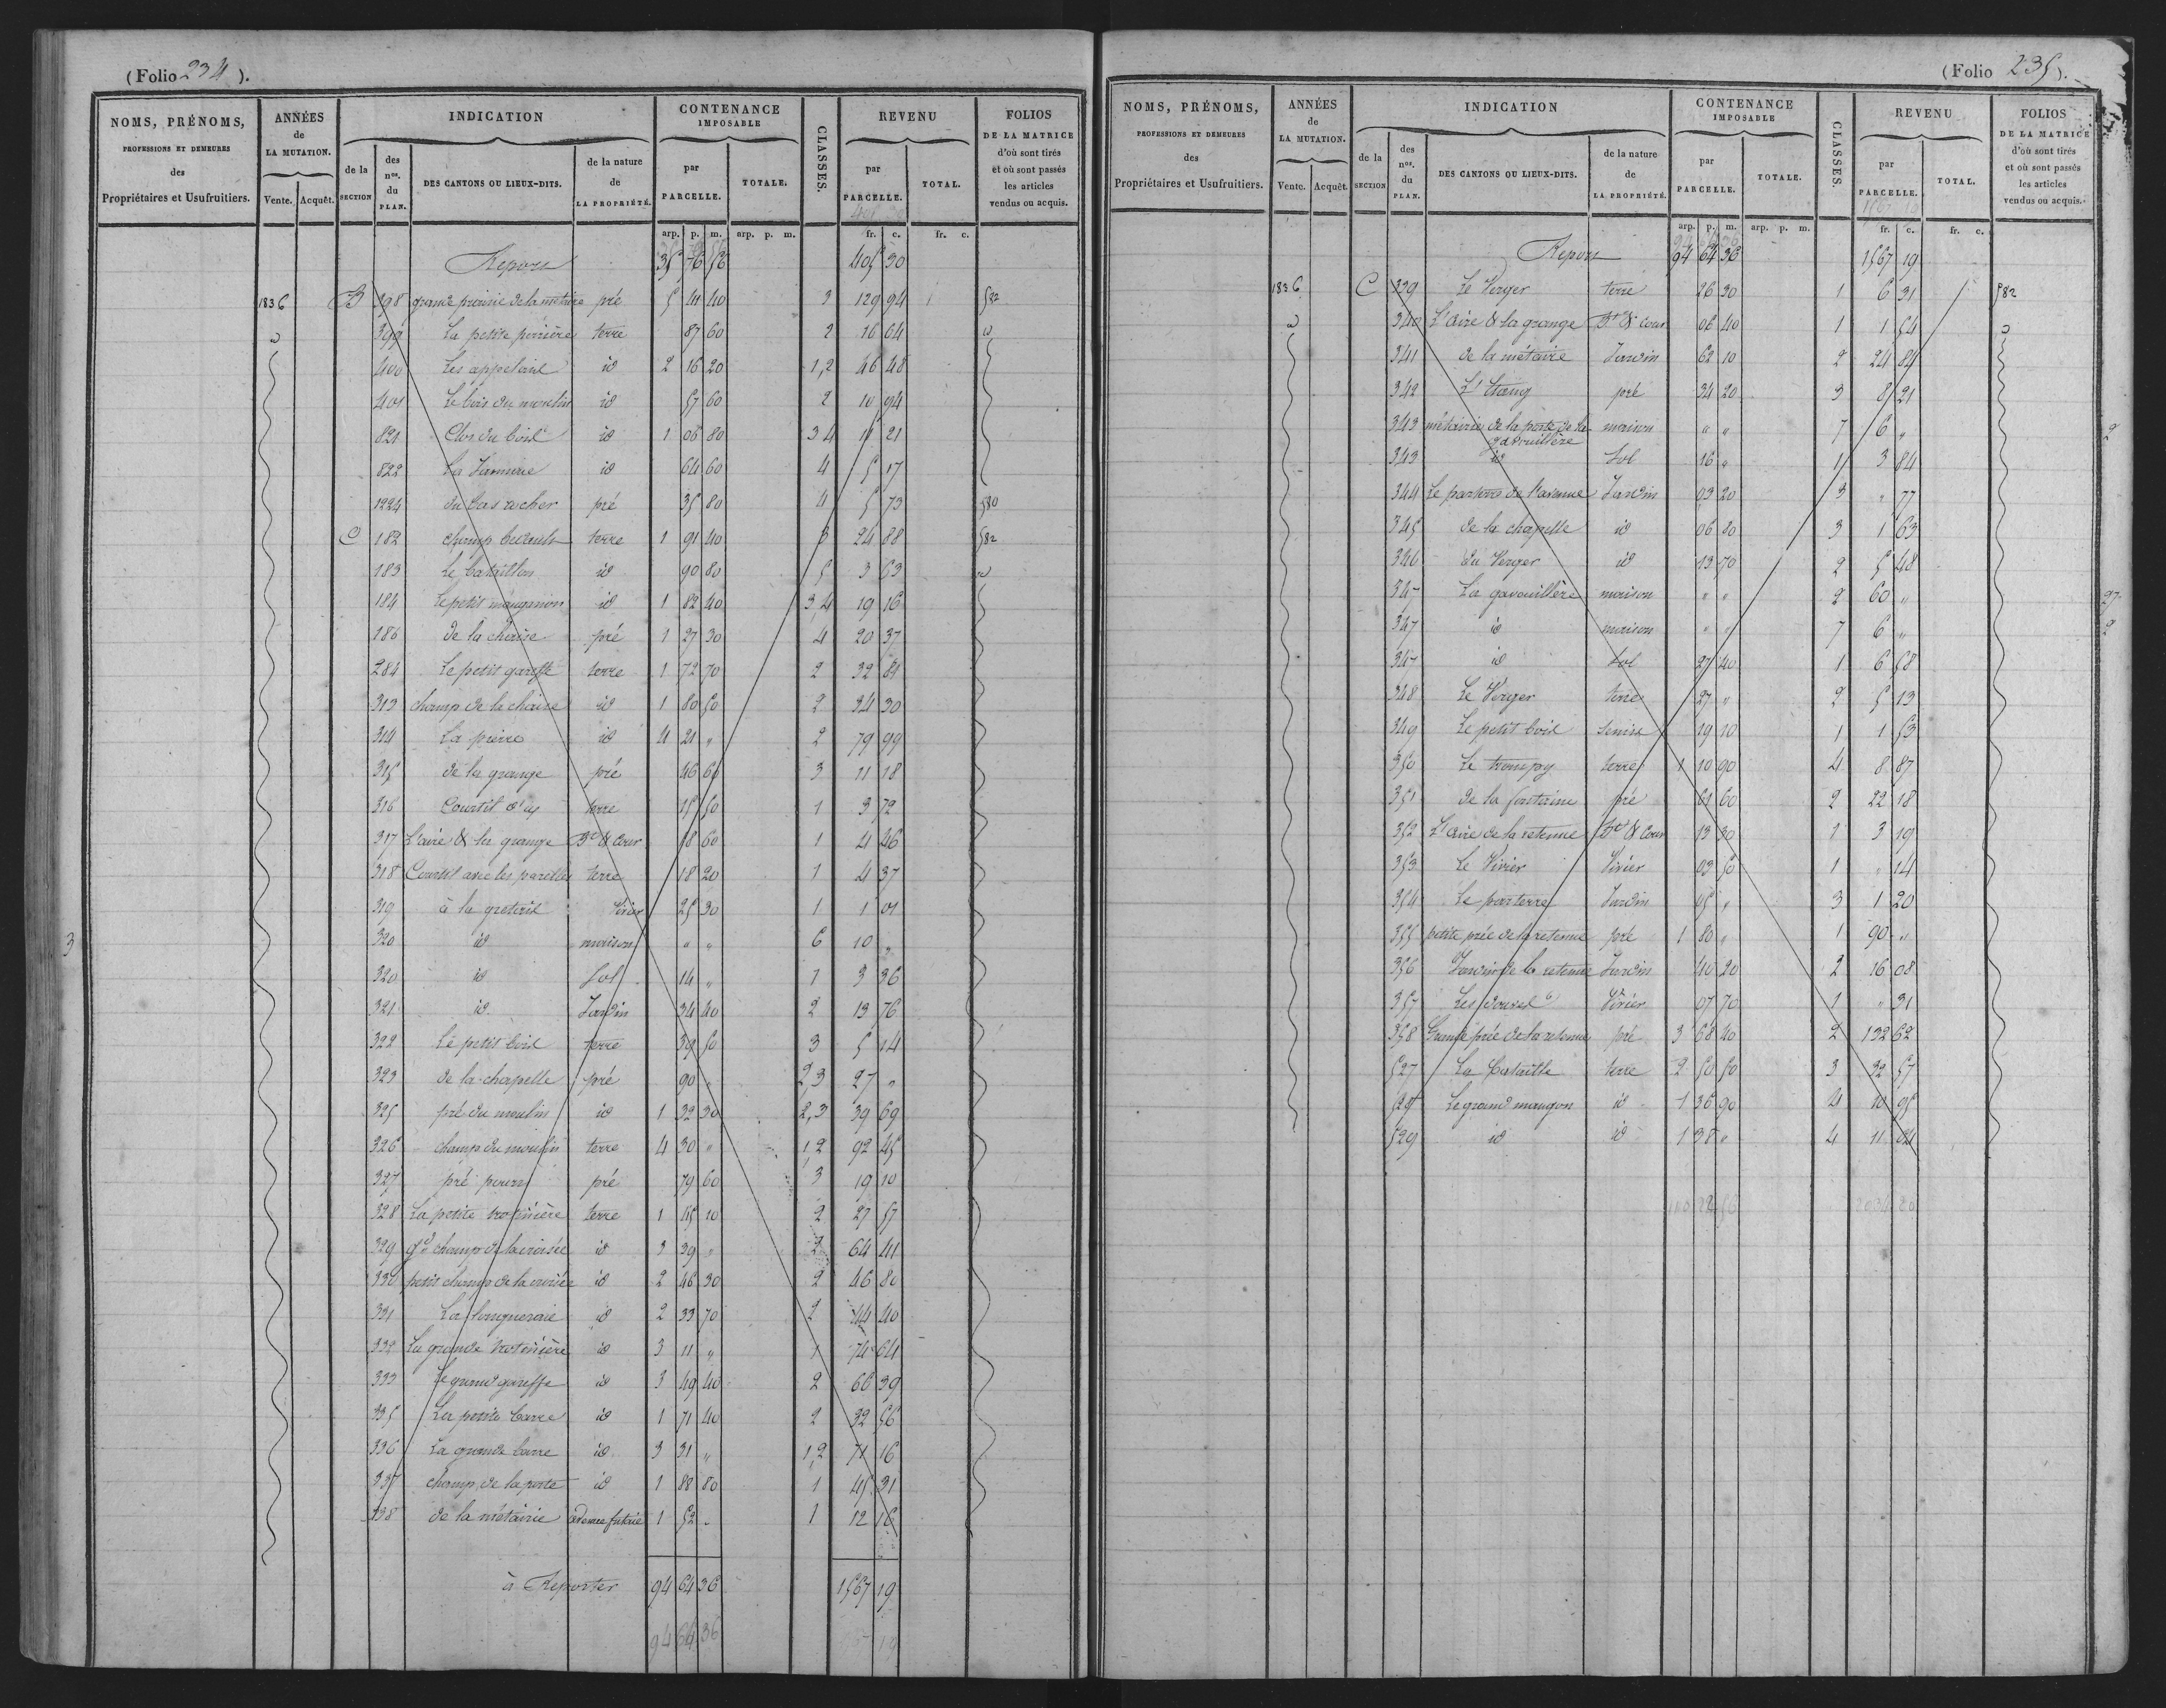 (Folio 234).
NOMS, PRÉNOMS, PROFESSIONS ET DEMEURES des Propriétaires et Usufruitiers. | ANNÉES de LA MUTATION. Vente. Acquêt. | INDICATION de la SECTION | des nos. du PLAN. | DES CANTONS OU LIEUX-DITS. | de la nature de LA PROPRIÉTÉ. | CONTENANCE IMPOSABLE par PARCELLE. | TOTALE. | CLASSES. | REVENU par PARCELLE. | TOTAL. | FOLIOS DE LA MATRICE d'où sont tirés et où sont passés les articles vendus ou acquis.
arp. p. m. arp. p. m. fr. c. fr. c.
Report 35 76 56 405 30
1836 B 398 grande prairie de la métairie pré 5 41 40 3 129 94 582
id 399 La petite perrière terre 87 60 2 16 64 id
400 Les appelaint id 2 16 20 1,2 46 48
401 Le bois du moulin id 57 60 2 10 94
821 Clos du bois id 1 06 80 3 4 11 21
822 La id 64 60 4 5 17
1224 du bas rocher pré 35 80 4 5 73 580
C 182 champ terre 1 91 40 3 24 88 582
183 Le bataillon id 90 80 5 3 63 id
184 Le petit id 1 82 40 3,4 19 16
186 de la chaise pré 1 27 30 4 20 37
284 Le petit gareffe terre 1 72 70 2 32 81
313 champ de la chaise id 1 80 50 2 34 30
314 La pierre id 4 21 " 2 79 99
315 de la grange pré 46 60 3 11 18
316 Courtil terre 15 50 1 3 72
317 L'aire & la grange Bt & Cour 18 60 1 4 46
318 Courtil avec les parelles terre 18 20 1 4 37
319 à la Vivier 25 30 1 1 01
3 320 id maison " " 6 10 "
320 id Sol 14 " 1 3 36
321 id Jardin 34 40 2 13 76
322 Le petit bois terre 39 50 3 5 14
323 de la chapelle pré 90 " 2,3 27 "
325 pré du moulin id 1 32 30 2,3 39 69
326 champ du moulin terre 4 30 " 1 2 92 45
327 pré pré 79 60 3 19 10
328 La petite terre 1 45 10 2 27 57
329 gd champ de la croisée id 3 39 " 2 64 41
330 petit champ de la croisée id 2 46 30 2 46 80
331 La longueraie id 2 33 70 2 44 40
332 La grande id 3 11 " 1 74 64
333 Le grand gareffe id 3 49 40 2 66 39
335 La petite barre id 1 71 40 2 32 56
336 La grande barre id 3 31 " 1,2 71 16
337 champ de la porte id 1 88 80 1 45 31
338 de la métairie avenue futaie 1 52 " 1 12 16
à Reporter 94 64 36 1567 19
94 64 36 19
(Folio 235).
NOMS, PRÉNOMS, PROFESSIONS ET DEMEURES des Propriétaires et Usufruitiers. | ANNÉES de LA MUTATION. Vente. Acquêt. | INDICATION de la SECTION | des nos. du PLAN. | DES CANTONS OU LIEUX-DITS. | de la nature de LA PROPRIÉTÉ. | CONTENANCE IMPOSABLE par PARCELLE. | TOTALE. | CLASSES. | REVENU par PARCELLE. | TOTAL. | FOLIOS DE LA MATRICE d'où sont tirés et où sont passés les articles vendus ou acquis.
arp. p. m. arp. p. m. fr. c. fr. c.
Report 94 64 36 1567 19
1836 C 339 Le Verger terre 26 30 1 6 31 582
id 340 L'aire & la grange Bt & Cour 06 40 1 1 54 id
341 de la métairie Jardin 62 10 2 24 84
342 L'étang pré 34 20 3 8 21
343 métairie de la porte de la gavouillère maison " " 7 6 " 2
343 id Sol 16 " 1 3 84
344 Le parterre de l'avenue Jardin 03 20 3 " 77
345 de la chapelle id 06 80 3 1 63
346 du Verger id 13 70 2 5 48
347 La gavouillère maison " " 2 60 " 27
347 id maison " " 7 6 " 2
347 id Sol 27 40 1 6 58
348 Le Verger terre 27 " 2 5 13
349 Le petit bois Semis 19 10 1 1 53
350 Le trompy terre 1 10 90 4 8 87
351 de la fontaine pré 61 60 2 22 18
352 L'aire de la retenue Bt & Cour 13 30 1 3 19
353 Le Vivier Vivier 03 50 1 " 14
354 Le parterre Jardin 05 " 3 1 20
355 petite prée de la retenue pré 1 80 " 1 90 "
356 Jardin de la retenue Jardin 40 20 2 16 08
357 Les douves Vivier 07 70 1 " 31
358 Grande prée de la retenue pré 3 68 40 2 132 62
527 La Bataille terre 2 50 50 3 32 57
528 Le grand maugon id 1 36 90 4 10 95
529 id id 1 38 " 4 11 04